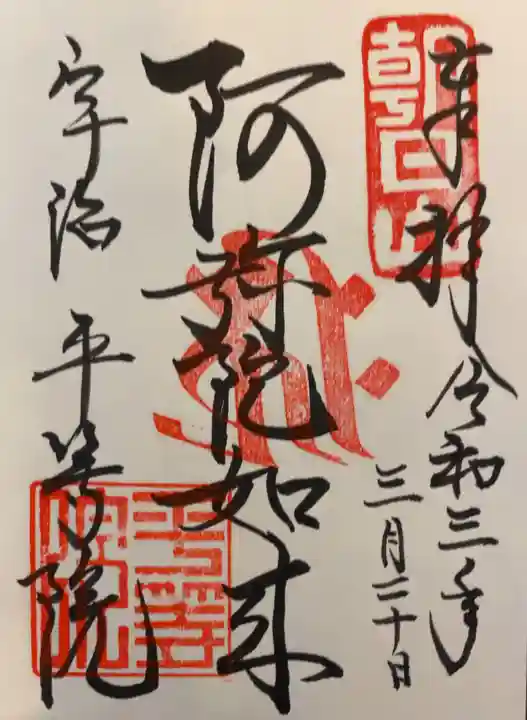 奉拝
令和三年
三月二十日
朝日山
阿弥陀如来
宇治
平等院
平等院